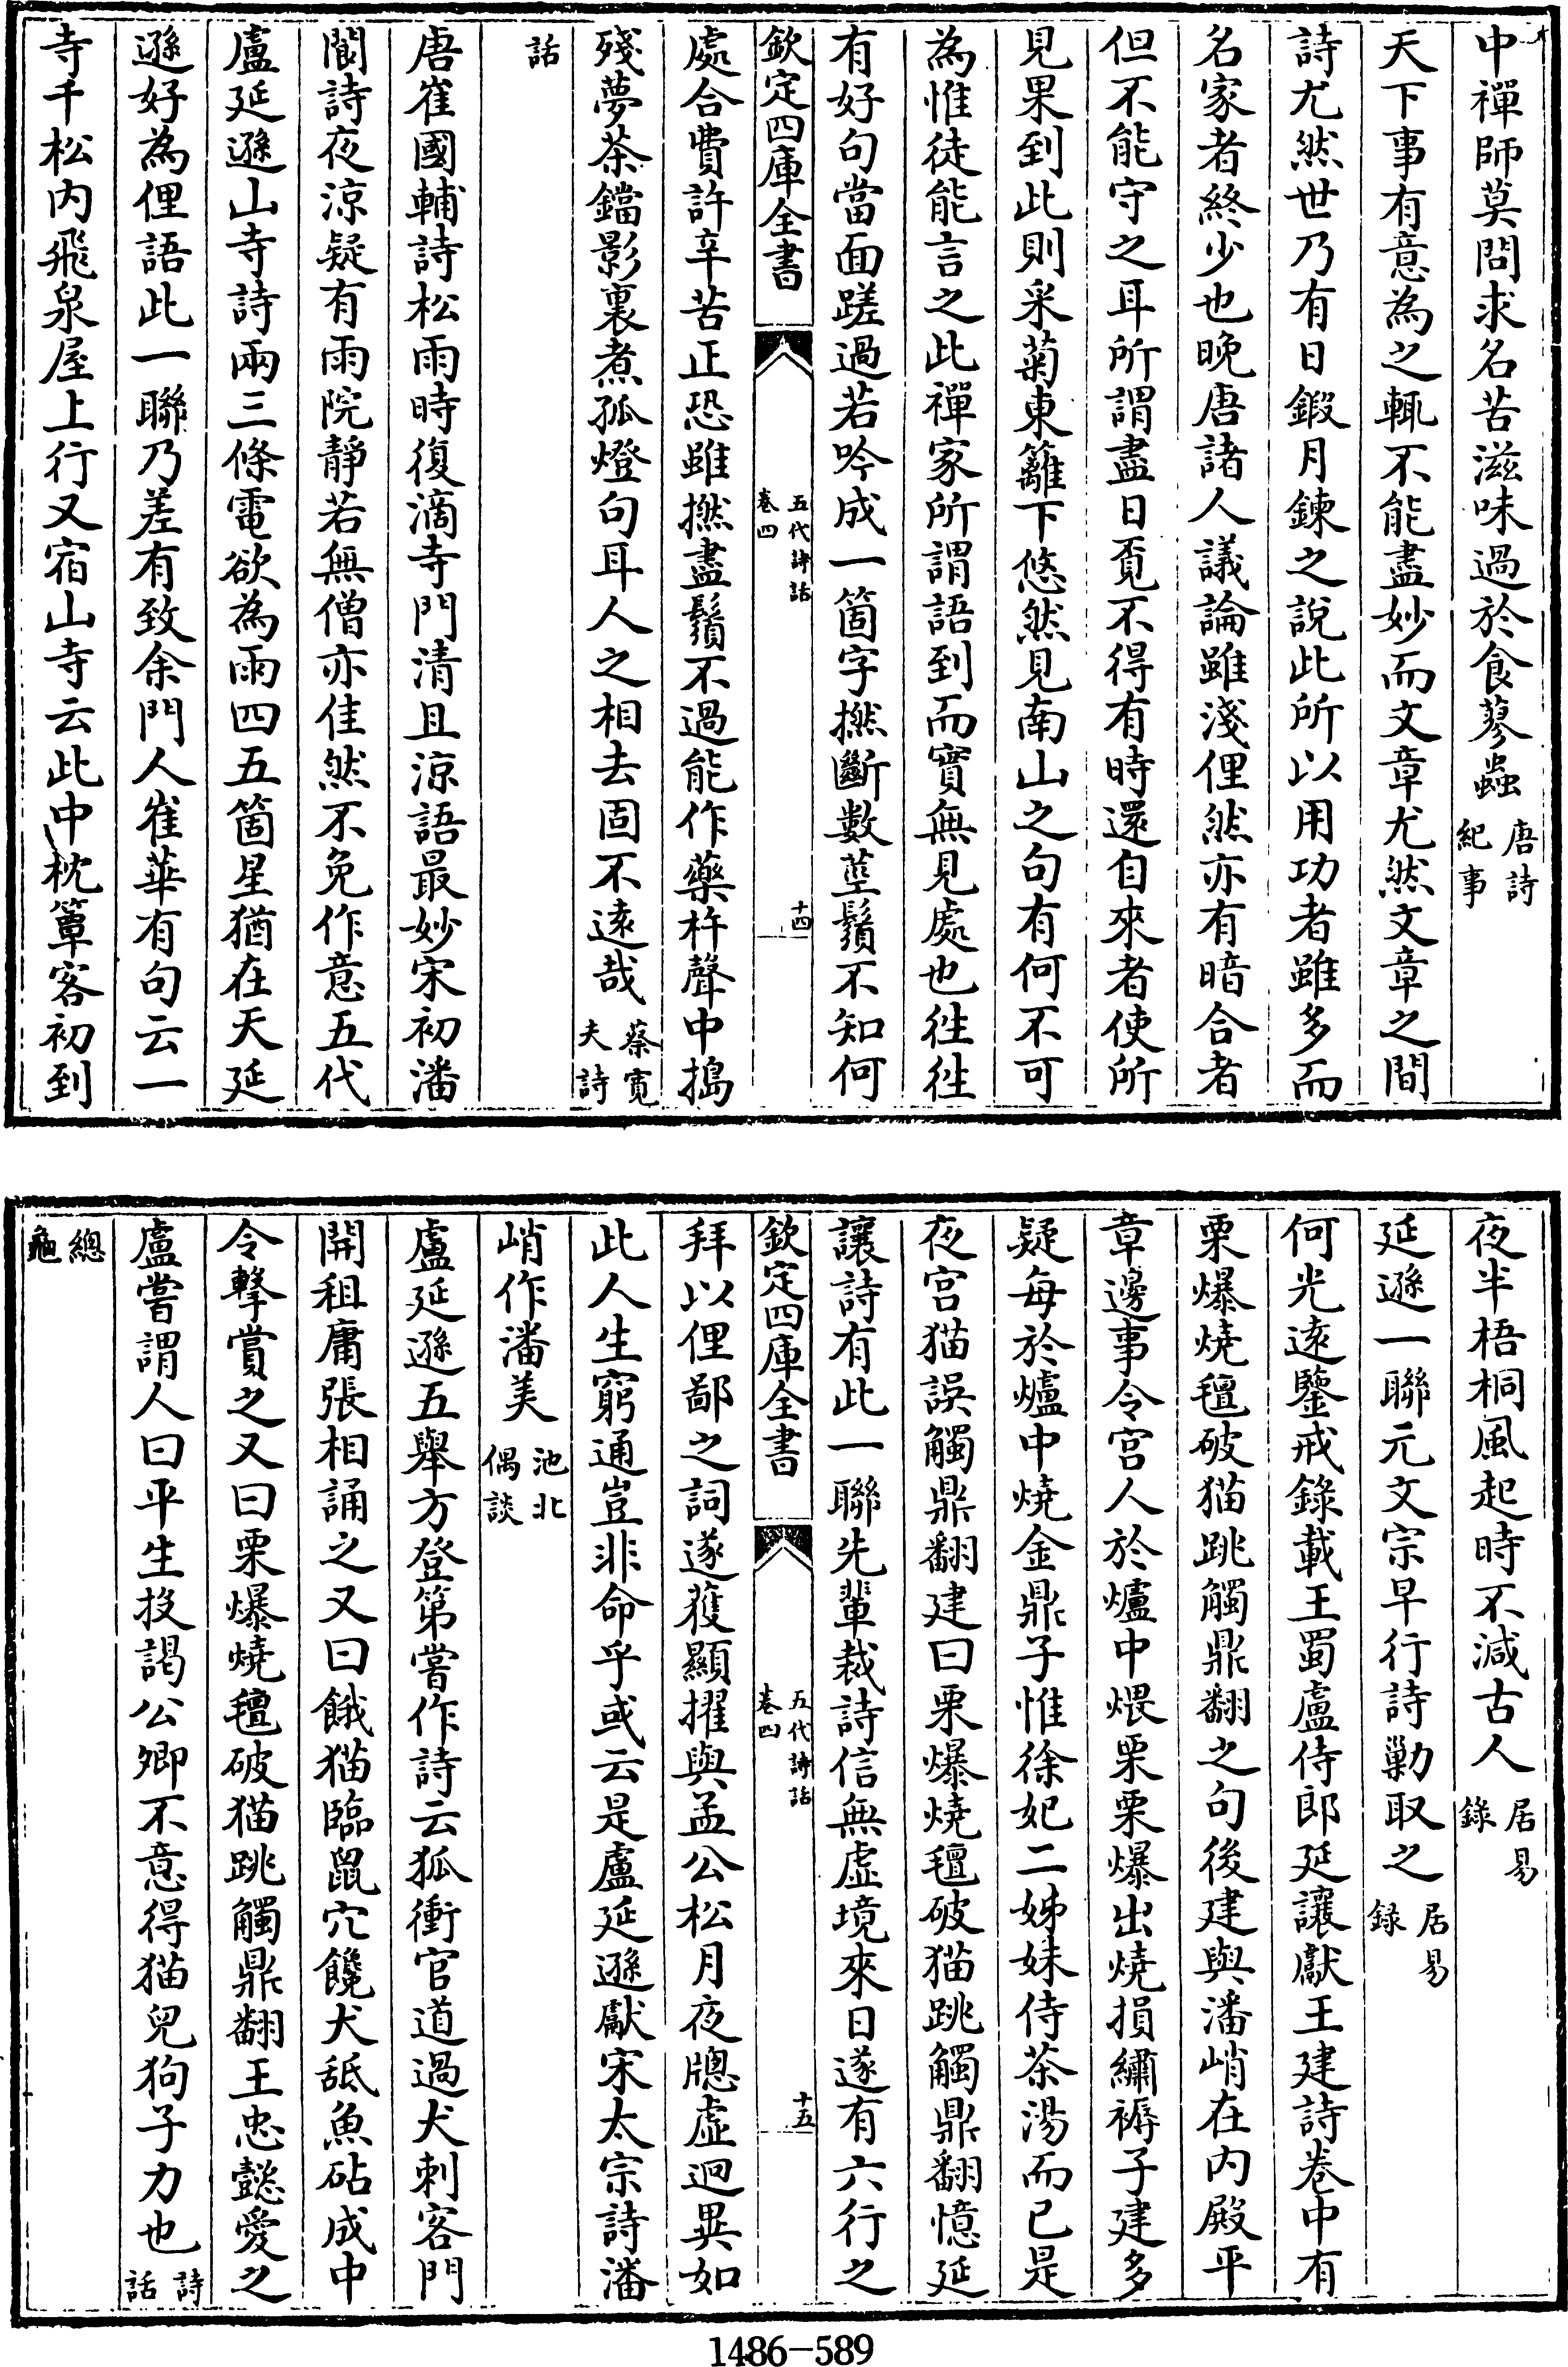 中禪師莫問求名苦滋味過於食蓼蟲唐詩紀事
天下事有意為之輒不能盡妙而文章尤然文章之間
詩尤然世乃有日鍛月鍊之說此所以用功者雖多而
名家者終少也晚唐諸人議論雖淺俚然亦有暗合者
但不能守之耳所謂盡日覔不得有時還自來者使所
見果到此則采菊東籬下悠然見南山之句有何不可
為惟徒能言之此禪家所謂語到而實無見處也徃徃
有好句當面蹉過若吟成一箇字撚斷數莖鬚不知何
欽定四庫全書
五代詩話
卷四
十四
處合費許辛苦正恐雖撚盡鬚不過能作藥杵聲中搗
殘夢茶鐺影裏煮孤燈句耳人之相去固不遠哉蔡寬夫詩
話
唐崔國輔詩松雨時復滴寺門清且涼語最妙宋初潘
閬詩夜涼疑有雨院靜若無僧亦佳然不免作意五代
盧延遜山寺詩兩三條電欲為雨四五箇星猶在天延
遜好為俚語此一聯乃差有致余門人崔華有句云一
寺千松内飛泉屋上行又宿山寺云此中枕簟客初到
夜半梧桐風起時不減古人居易錄
延遜一聯元文宗早行詩勦取之居易録
何光遠鑒戒錄載王蜀盧侍郎延讓獻王建詩卷中有
栗爆燒氊破猫跳觸鼎翻之句後建與潘峭在内殿平
章邊事令宫人於爐中煨栗栗爆出燒損繡褥子建多
疑每於爐中燒金鼎子惟徐妃二姊妹侍茶湯而已是
夜宫猫誤觸鼎翻建曰栗爆燒氊破猫跳觸鼎翻憶延
讓詩有此一聯先輩裁詩信無虚境來日遂有六行之
欽定四庫全書
五代詩話
卷四
十五
拜以俚鄙之詞遂獲顯擢與孟公松月夜牕虚迥異如
此人生窮通豈非命乎或云是盧延遜獻宋太宗詩潘
峭作潘美池北偶談
盧延遜五舉方登第嘗作詩云狐衝官道過犬刺客門
開租庸張相誦之又曰餓猫臨鼠穴饞犬舐魚砧成中
令擊賞之又曰栗爆燒氊破猫跳觸鼎翻王忠懿愛之
盧嘗謂人曰平生投謁公卿不意得猫兒狗子力也詩話
總龜
1486-589